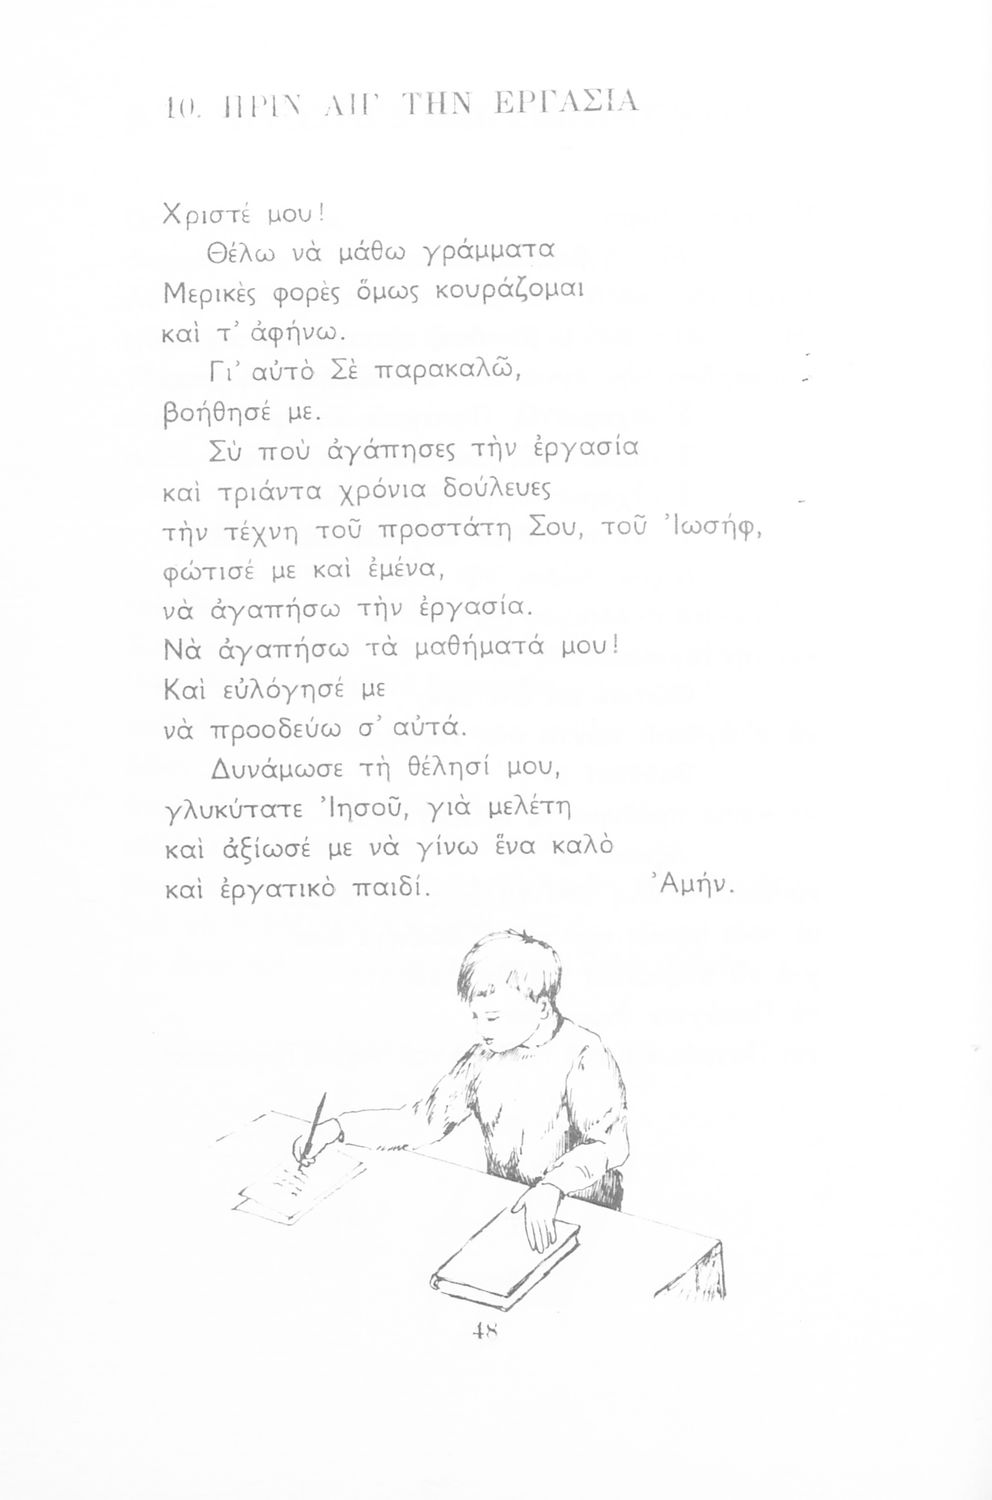 10. ΠΡΙΝ ΑΠ' ΤΗΝ ΕΡΓΑΣΙΑ
Χριστέ μου!
Θέλω νὰ μάθω γράμματα
Μερικὲς φορὲς ὅμως κουράζομαι
καὶ τ' ἀφήνω.
Γι' αὐτὸ Σὲ παρακαλῶ,
βοήθησέ με.
Σὺ ποὺ ἀγάπησες τὴν ἐργασία
καὶ τριάντα χρόνια δούλευες
τὴν τέχνη τοῦ προστάτη Σου, τοῦ Ἰωσήφ,
φώτισέ με καὶ ἐμένα,
νὰ ἀγαπήσω τὴν ἐργασία.
Νὰ ἀγαπήσω τὰ μαθήματά μου!
Καὶ εὐλόγησέ με
νὰ προοδεύω σ' αὐτά.
Δυνάμωσε τὴ θέλησί μου,
γλυκύτατε Ἰησοῦ, γιὰ μελέτη
καὶ ἀξίωσέ με νὰ γίνω ἕνα καλὸ
καὶ ἐργατικὸ παιδί. Ἀμήν.
48